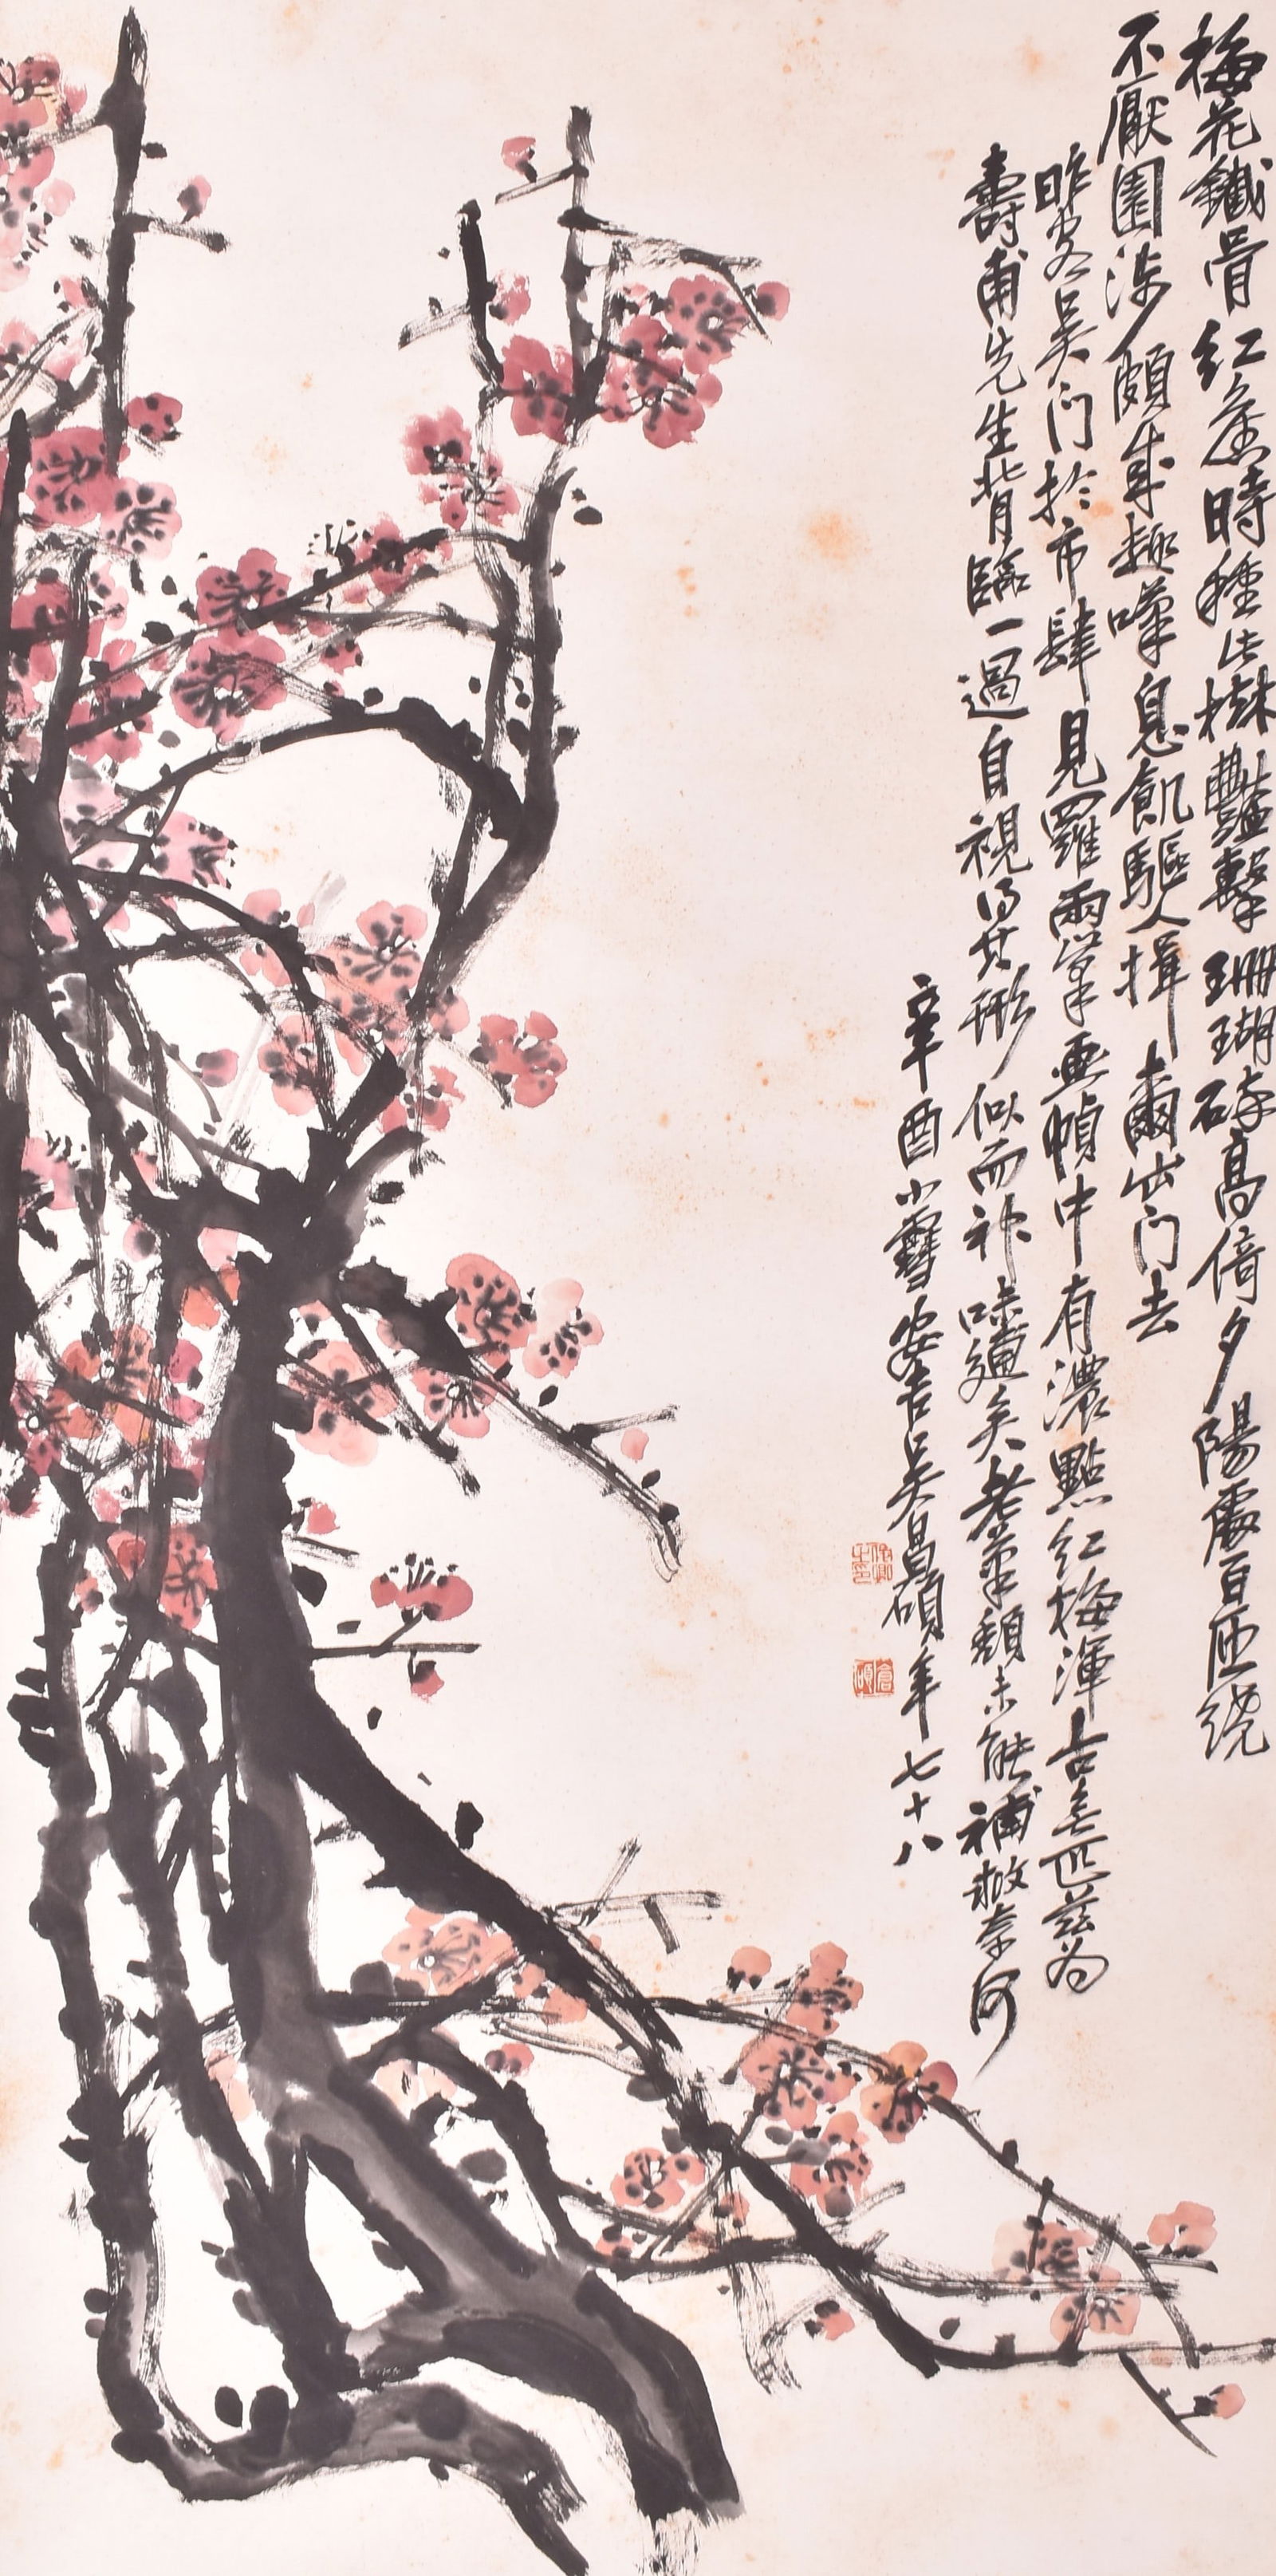 梅花鐵骨紅蕉時種此樹豔擊珊瑚碎高倚夕陽處百匝繞
不厭園涉頗成趣嘆息飢驅人揖爾出門去
昨客吳門於市肆見羅兩峯畫幀中有濃點紅梅渾古無匹茲為
壽甫先生背臨一過自視得其形似而神味遁矣老筆頹未能補救奈何
辛酉小雪安吉吳昌碩年七十八
倉碩